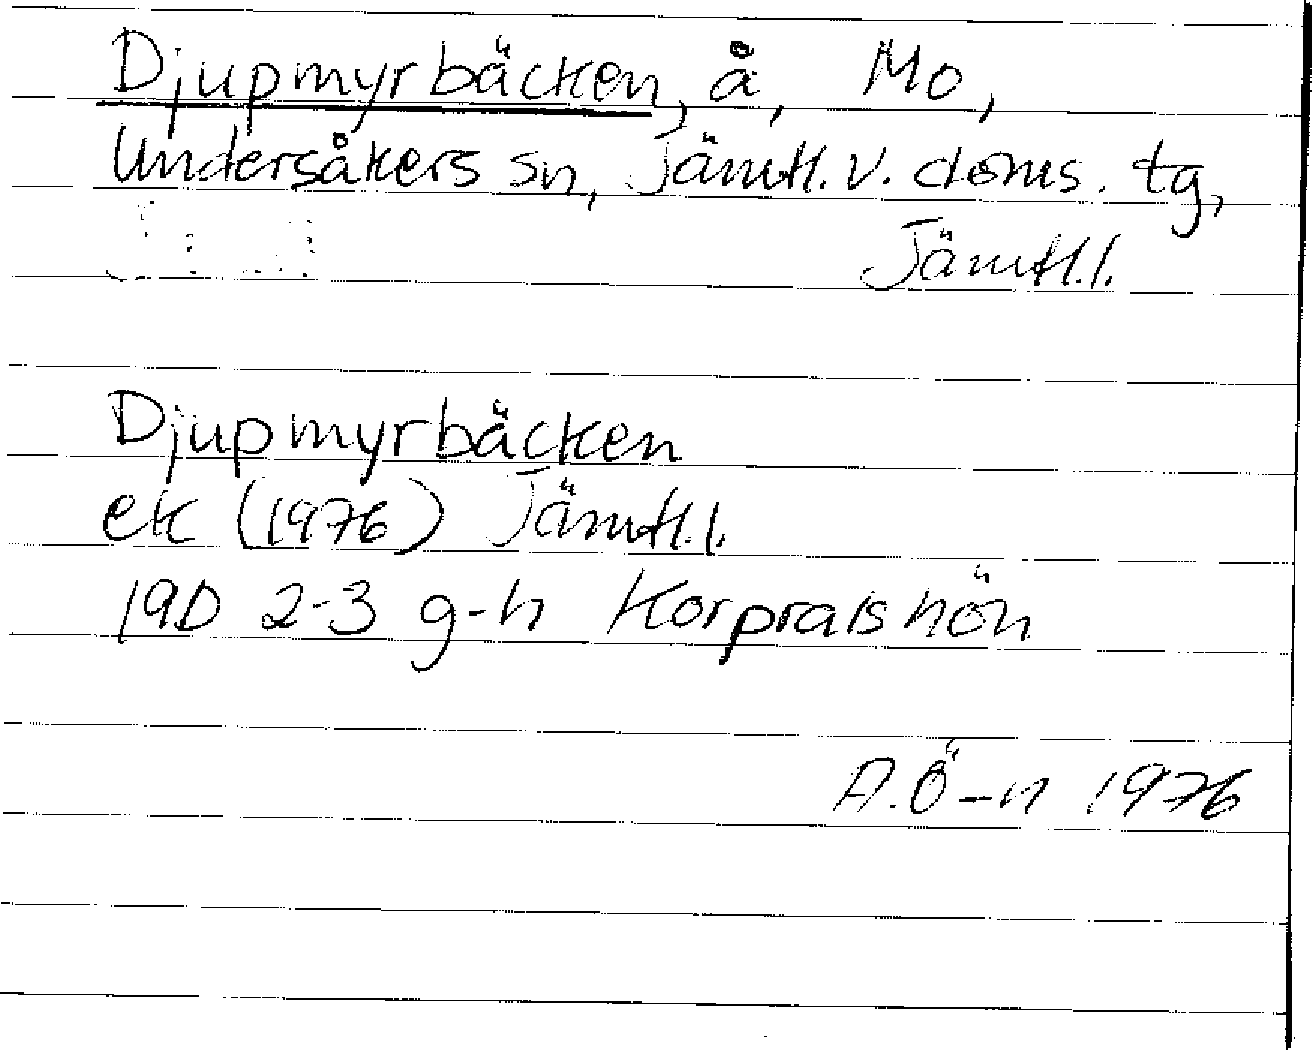 Djupmyrbäcken, å, Mo,
Undersåkers sn, Jämtl. v. doms. tg,
Jämtl.l.
Djupmyrbäcken
ek (1976) Jämtl.l.
19D 2-3 g-h Korpralshön
A.Ö-n 1976